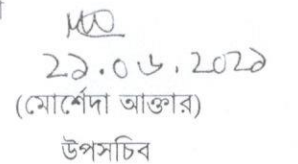 ২১.০৬.২০২১
(মোর্শেদা আক্তার)
উপসচিব